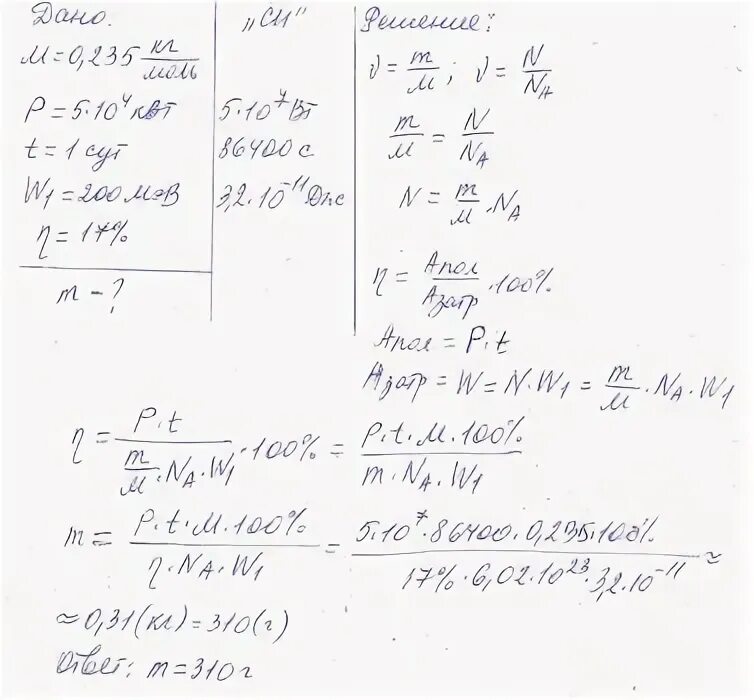 Дано.
М = 0,235 кг/моль
P = 5·10⁴ кВт
t = 1 сут
W₁ = 200 МэВ
η = 17%
m - ?
„СИ"
5·10⁷ Вт
86400 с
3,2·10⁻¹¹ Дж
Решение:
ν = m/М ; ν = N/N_A
m/М = N/N_A
N = m/М · N_A
η = Aпол/Aзатр · 100%
Aпол = P·t
Aзатр = W = N·W₁ = m/М · N_A · W₁
η = P·t / (m/М · N_A · W₁) · 100% = P·t·М·100% / (m·N_A·W₁)
m = P·t·М·100% / (η·N_A·W₁) = 5·10⁷·86400·0,235·100% / (17%·6,02·10²³·3,2·10⁻¹¹) ≈
≈ 0,31 (кг) = 310 (г)
Ответ: m = 310 г